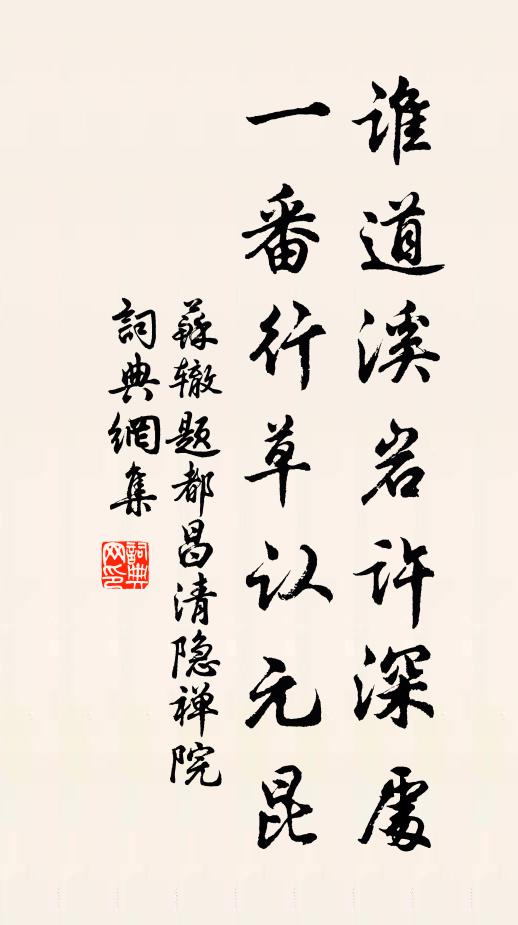 谁道溪岩许深處
一番行草认元昆
蘇辙题都昌清隐禅院
詞典網集
詞典网印